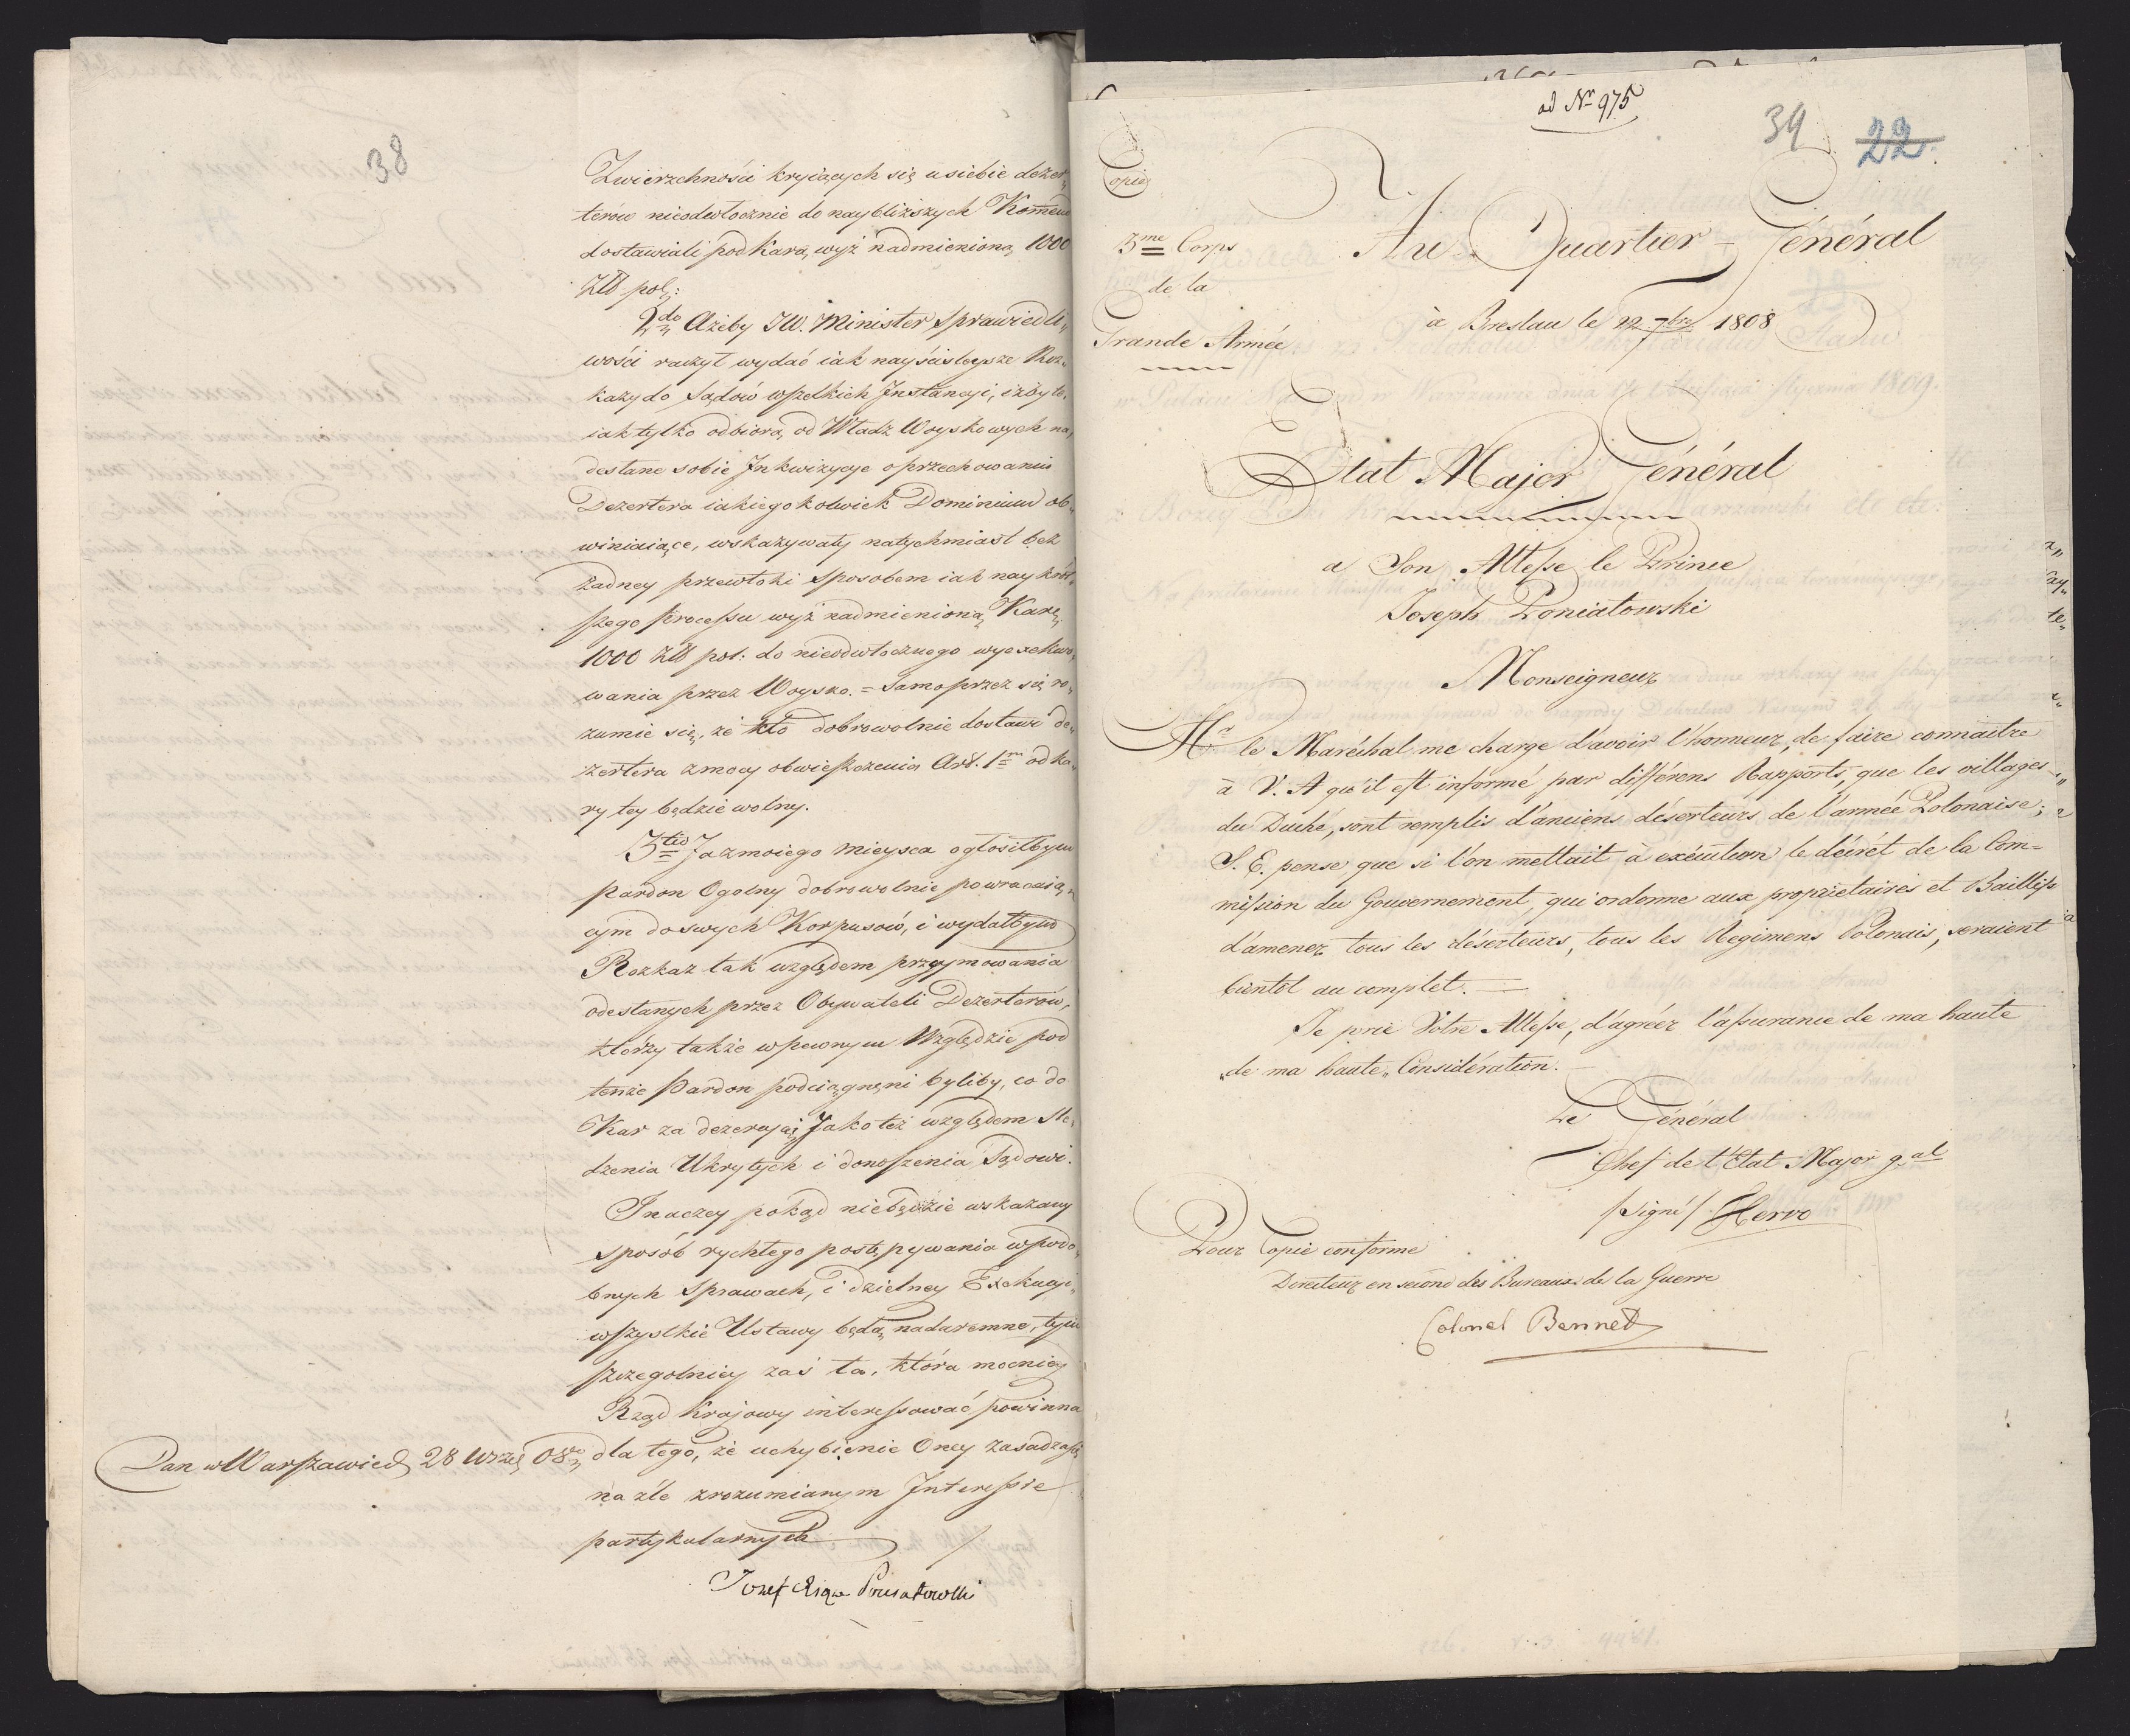 38
Zwierzchności kryiących się u siebie dezer„
terów nieodwłocznie do naybliższych Kommend
dostawiali pod Karą wyż nadmienioną 1000
Złł pol:
2do Ażeby JW. Minister Sprawiedli„
wości raczył wydać iak nayściśleysze Roz„
kazy do Sądów wszelkich Jnstancyi, iżby te„
iak tylko odbiorą od Władz Woyskowych na„
desłane sobie Jnkwizycye o przechowaniu
Dezertera iakiegokolwiek Dominium ob„
winiaiące, wskazywały natychmiast bez
żadney przewłoki sposobem iak naykrót„
szego processu wyż nadmienioną Karę
1000 Złł pol: do nieodwłocznego wyexekwo„
wania przez Woysko. = Samo przez się ro„
zumie się, że kto dobrowolnie dostawi de„
zertera z mocy obwieszczenia Art. 1m od ka„
ry tey będzie wolny.
3tio Ja z moiego mieysca ogłosiłbym
Pardon Ogolny dobrowolnie powracaią„
cym do swych Korpusów, i wydałbym
Rozkaz tak względem przyymowania
odesłanych przez Obywateli Dezerterów,
którzy także w pewnym Względzie pod
tenże Pardon podciągnęni byliby, co do
Kar za dezercyą; Jako też względem Śle„
dzenia Ukrytych i donoszenia Sądowi.
Jnaczey pokąd nie będzie wskazany
sposób rychłego postępywania w podo„
bnych Sprawach, i dzielney Exekucyi„
wszystkie Ustawy będą nadaremne, tym
szczegolniey zaś ta, która mocniey
Rząd Krajowy interessować powinna
dla tego, że uchybienie Oney zasadza się
na źle zrozumianym Jnteressie
partykularnych
Dan w Warszawie d 28 Wrześ 08
Jozef Xiąże Poniatowski
od Nr 975
34
22
Copie
3me Corps
de la
Grande Armée
Au Quartier-Général
à Breslau le 22 7bre 1808
Etat Major Général
a Son Altesse le Prince
Joseph Poniatowski
Monseigneur
Mr le Maréchal me charge d'avoir l'honneur, de faire connaitre
à V. A qu'il est informé par différens Rapports, que les villages
du Duché, sont remplis d'anciens déserteurs de l'armée Polonaise;
S. E. pense que si l'on mettait à exécution le décrét de la Com=
mission du Gouvernement, qui ordonne aux proprietaires et Baillifs
d'amener tous les déserteurs, tous les Regimens Polonais, seraient
bientôt au complet. =
Je prie Votre Altesse, d'agréer l'assurance de ma haute
„de ma haute„ Considération.
Le Général
Chef de l'Etat Major gal
/Signé/ Hervo
Pour Copie conforme
Directeur en second des Bureaux de la Guerre
Colonel Bennet